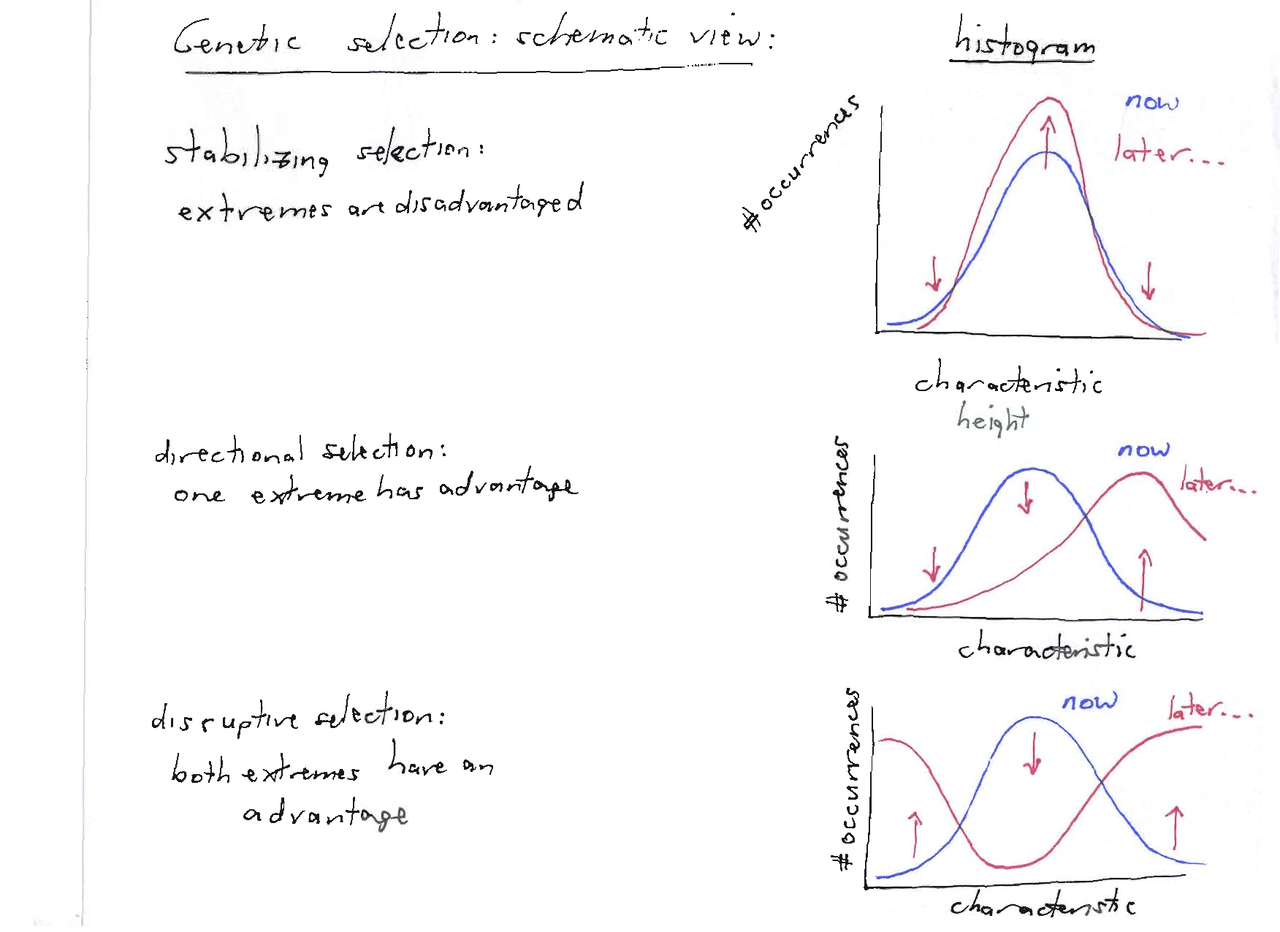 Genetic selection: schematic view:
histogram
stabilizing selection:
extremes are disadvantaged
# occurrences
now
later...
characteristic
height
directional selection:
one extreme has advantage
# occurrences
now
later...
characteristic
disruptive selection:
both extremes have an
advantage
# occurrences
now
later...
characteristic